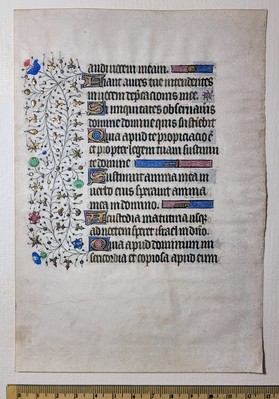 audi vocem meam.
Fiant aures tue intendentes
in vocem deprecationis mee.
Si iniquitates observaveris
domine domine quis sustinebit
Quia apud te propiciatio e
et propter legem tuam sustinui
te domine
Sustinuit anima mea in
verbo eius speravit anima
mea in domino.
A custodia matutina usq
ad noctem speret israel in dno.
Quia apud dominum mi
sericordia et copiosa apud eum